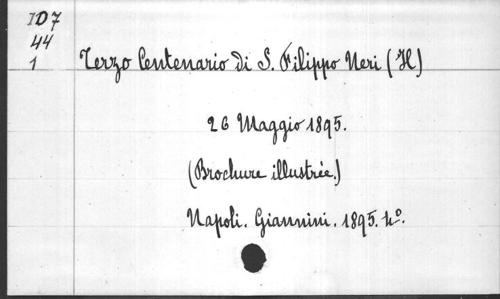 ID7
44
1
Terzo Centenario di S. Filippo Neri (Il)
26 Maggio 1895.
(Brochure illustrée.)
Napoli. Giannini. 1895. 4º.